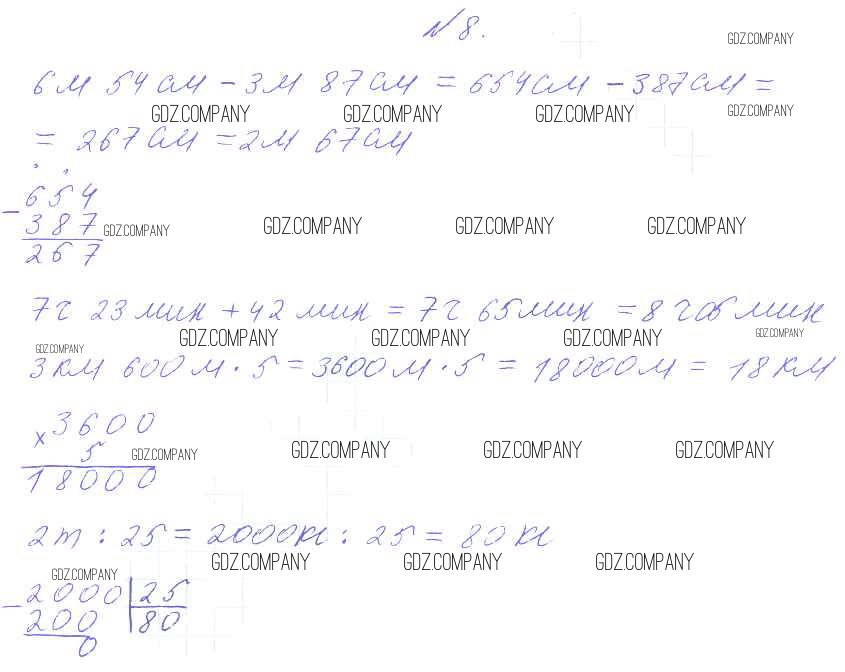 №8.
GDZ.COMPANY
6м 54см - 3м 87см = 654см - 387см =
GDZ.COMPANY GDZ.COMPANY GDZ.COMPANY GDZ.COMPANY
= 267см = 2м 67см
- 654
387 GDZ.COMPANY GDZ.COMPANY GDZ.COMPANY GDZ.COMPANY
267
7ч 23мин + 42мин = 7ч 65мин = 8ч 05мин
GDZ.COMPANY GDZ.COMPANY GDZ.COMPANY GDZ.COMPANY GDZ.COMPANY
3км 600м · 5 = 3600м · 5 = 18000м = 18км
× 3600
5 GDZ.COMPANY GDZ.COMPANY GDZ.COMPANY GDZ.COMPANY
18000
2т : 25 = 2000кг : 25 = 80кг
GDZ.COMPANY GDZ.COMPANY GDZ.COMPANY GDZ.COMPANY
- 2000 | 25
200 | 80
0